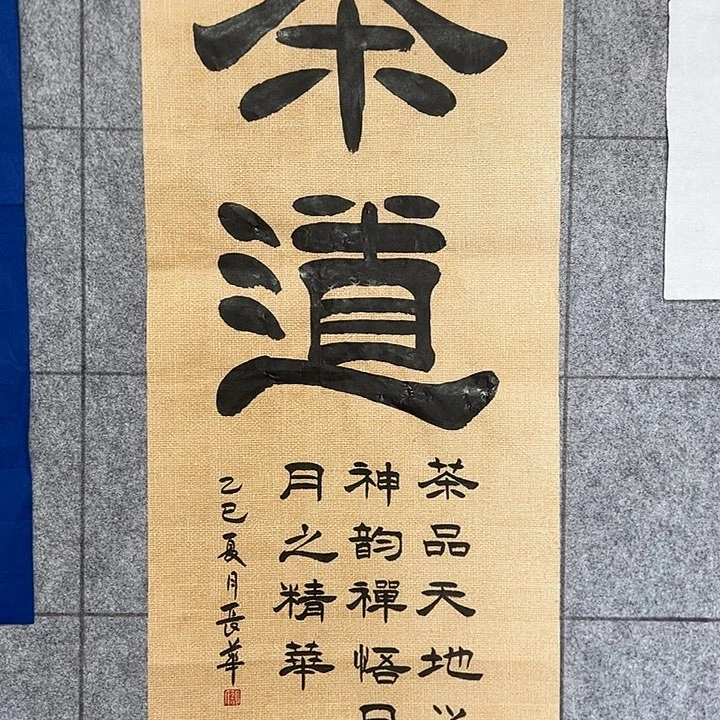 茶
道
茶品天地
神韵禪悟
月之精華
乙巳夏月長華